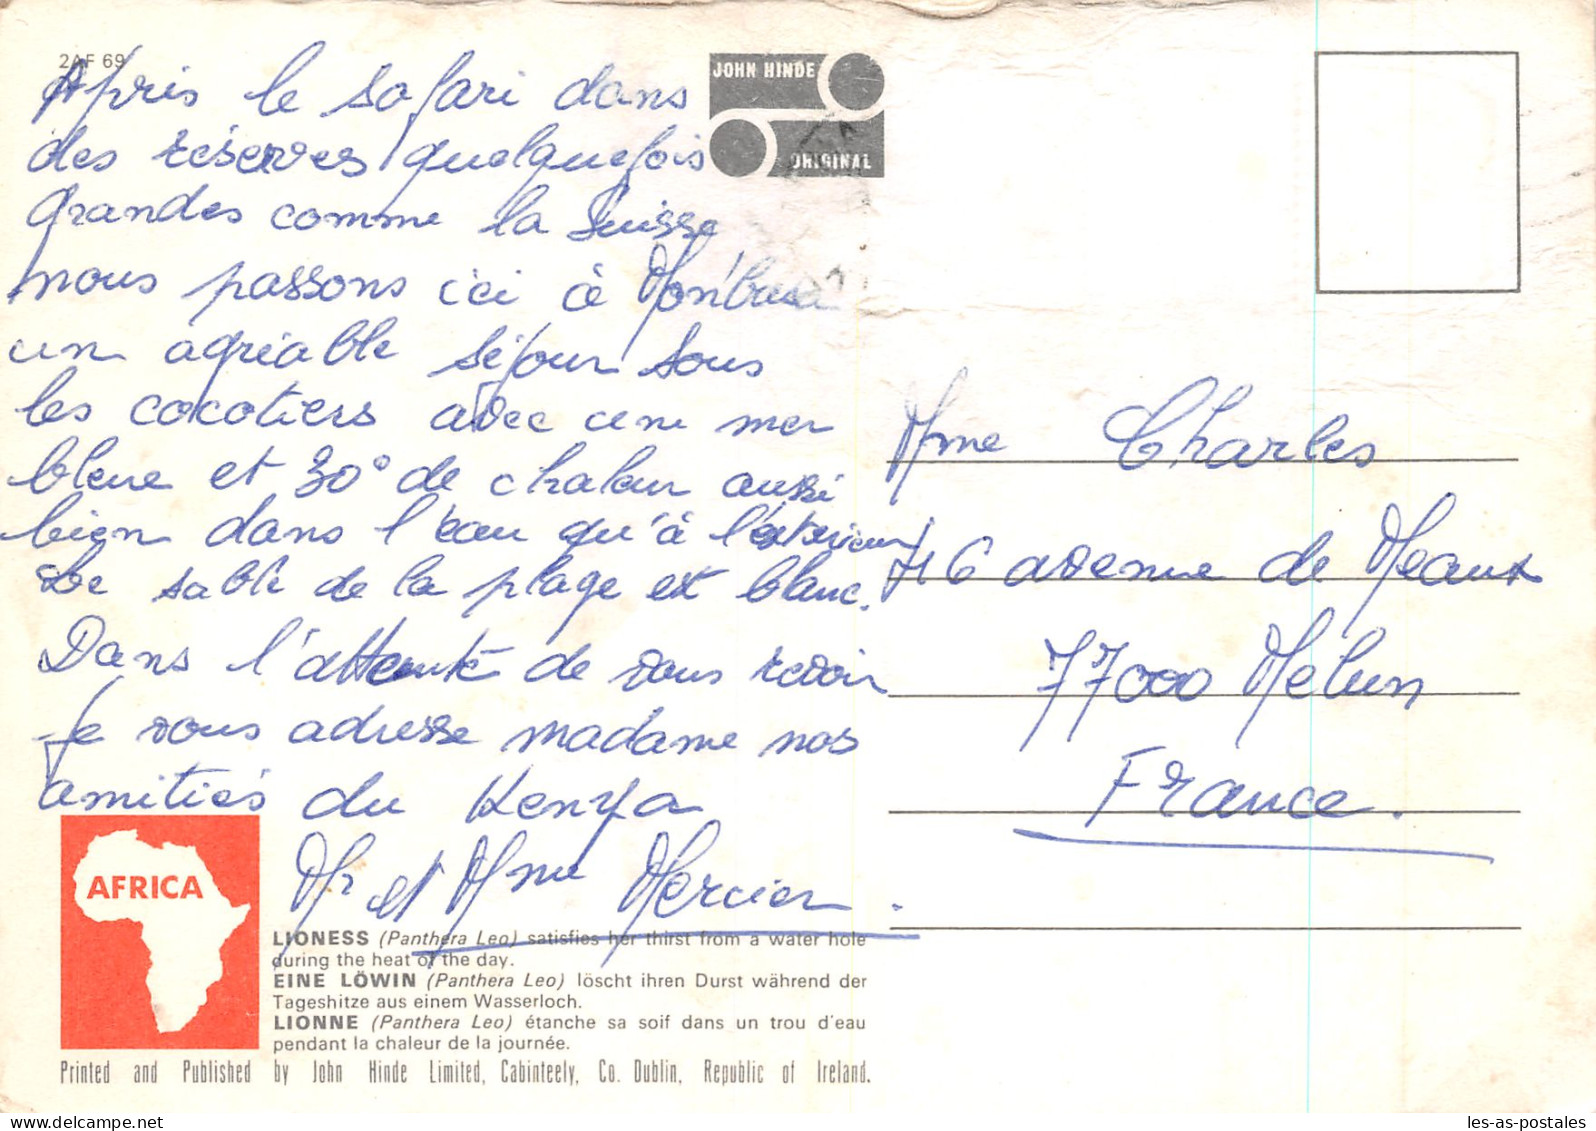 2AF 69
Après le safari dans
des réserves quelquefois
grandes comme la Suisse
nous passons ici à Mombasa
un agréable séjour sous
les cocotiers avec une mer
bleue et 30° de chaleur aussi
bien dans l'eau qu'à l'extérieur
Le sable de la plage est blanc.
Dans l'attente de vous revoir
je vous adresse madame nos
amitiés du Kenya
Mr et Mme Mercier.
JOHN HINDE
ORIGINAL
Mme Charles
46 avenue de Meaux
77000 Melun
France.
AFRICA
LIONESS (Panthera Leo) satisfies her thirst from a water hole
during the heat of the day.
EINE LÖWIN (Panthera Leo) löscht ihren Durst während der
Tageshitze aus einem Wasserloch.
LIONNE (Panthera Leo) étanche sa soif dans un trou d'eau
pendant la chaleur de la journée.
Printed and Published by John Hinde Limited, Cabinteely, Co. Dublin, Republic of Ireland.
les-as-postales